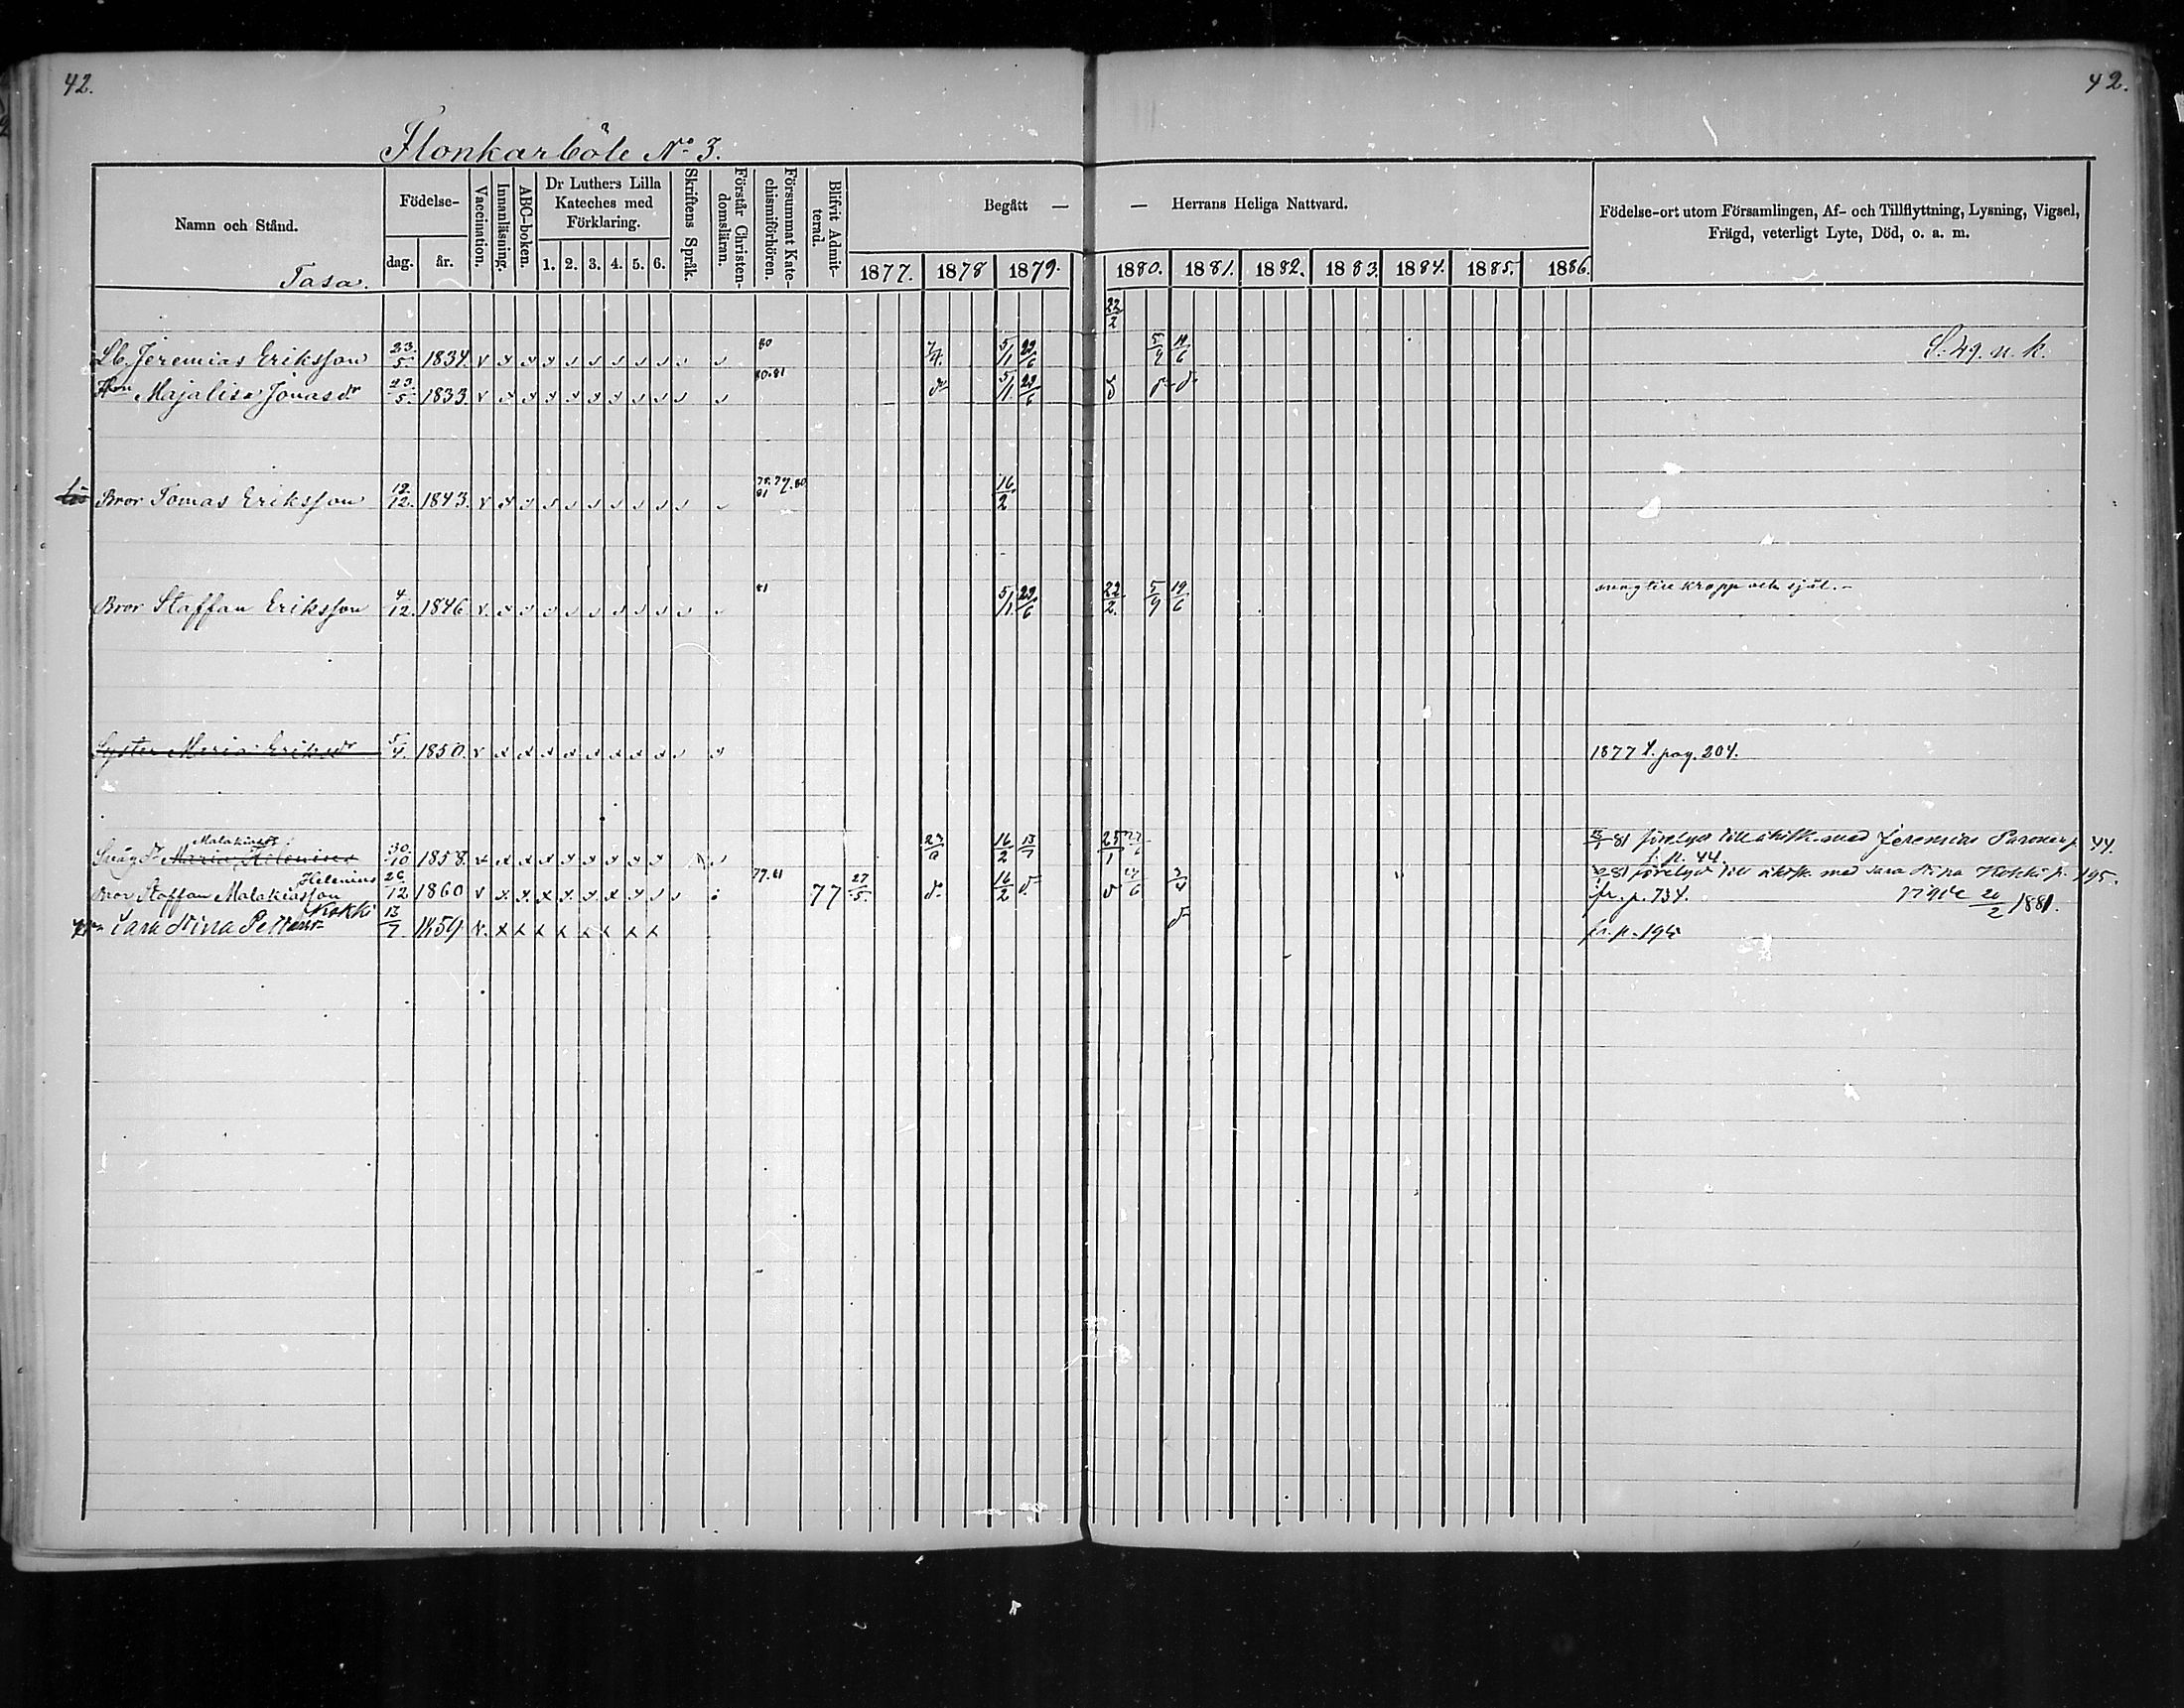 42. 42.
Flonkarböle No 3.
Namn och Stånd. Tasa.
Födelse- dag. år.
Vaccination.
Innanläsning.
ABC-boken.
Dr Luthers Lilla Kateches med Förklaring. 1. 2. 3. 4. 5. 6.
Skriftens Språk.
Förstår Christendomsläran.
Försummat Katechismiförhören.
Blifvit Admitterad.
Begått — — Herrans Heliga Nattvard.
1877. 1878 1879. 1880. 1881. 1882. 1883. 1884. 1885. 1886.
Födelse-ort utom Församlingen, Af- och Tillflyttning, Lysning, Vigsel,
Frägd, veterligt Lyte, Död, o. a. m.
22/2
Lb. Jeremias Eriksson 23/5. 1834. 80 5/11 29/6 5/9 19/6 S. 49. n. k.
Hon Majalisa Jonasdr 23/5. 1833. 80.81 5/11 29/6
Bror Tomas Eriksson 12/12. 1843. 78.79.80 81 16/2
Bror Staffan Eriksson 4/12. 1846 81 5/11 29/6 22/2. 5/9 19/6 svag till kropp och själ.
Syster Maria Eriksdr 5/4. 1850. 1877 t. pag. 204.
Malakiasdr
Maria Helenius 30/10 1858. 16/2 25/1 81 förelyst till äktsk. med Jeremias p. 44.
t. p. 44.
Helenius
Bror Staffan Malakiasson 26/12 1860 79.81 77 27/5. 16/2 81 förelyst till äktsk. med Sara Stina Kokki p. 195.
fr. p. 734. 20/2 1881.
Kokki
Sara Stina 13/7 1859 fr. p. 195